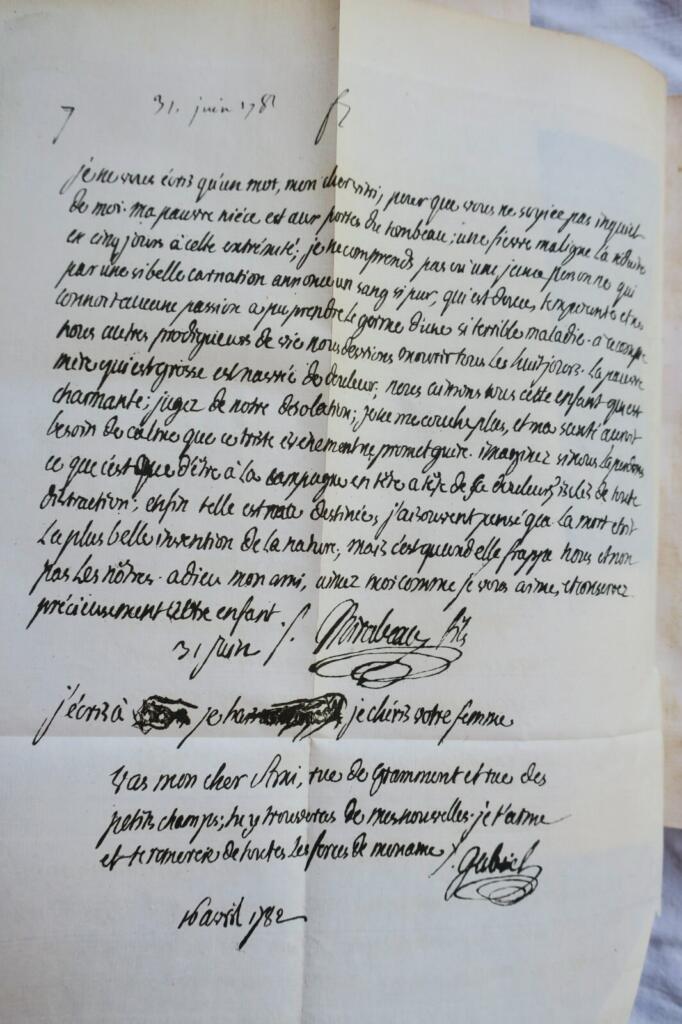 7 31. juin 1781
je ne vous écris qu'un mot, mon cher ami, pour que vous ne soyiez pas inquiet
de moi. ma pauvre niéce est aux portes du tombeau; une fievre maligne l'a réduite
en cinq jours à cette extrémité; je ne comprends pas où une jeune personne qui
par une si belle carnation annonce un sang si pur, qui est douce, temperante et ne
connoit aucune passion a pu prendre le germe d'une si terrible maladie. à ce compte
nous autres prodigueurs de vie nous dessions mourir tous les huit jours. La pauvre
mere qui est grosse est navrée de douleur; nous aimons tous cette enfant qui est
charmante; jugez de notre désolation; je ne me couche plus, et ma santé auroit
besoin de calme que ce triste évenement ne promet guere. imaginez si nous la perdons
ce que c'est que d'être à la campagne en tête a tête de sa douleur, isolés de toute
distraction; enfin telle est ma destinée; j'ai souvent pensé que la mort etoit
La plus belle invention de la nature; mais c'est quand elle frappe nous et non
pas Les nôtres. adieu mon ami, aimez moi comme je vous aime, et conservez
précieusement votre enfant. /. Mirabeau fils
31 juin
j'écris à je je chéris votre femme
Vas mon cher Ami, rue de Grammont et rue des
petits champs; tu y trouveras de mes nouvelles. je t'aime
et te remercie de toutes les forces de mon ame /. Gabriel
16 avril 1782